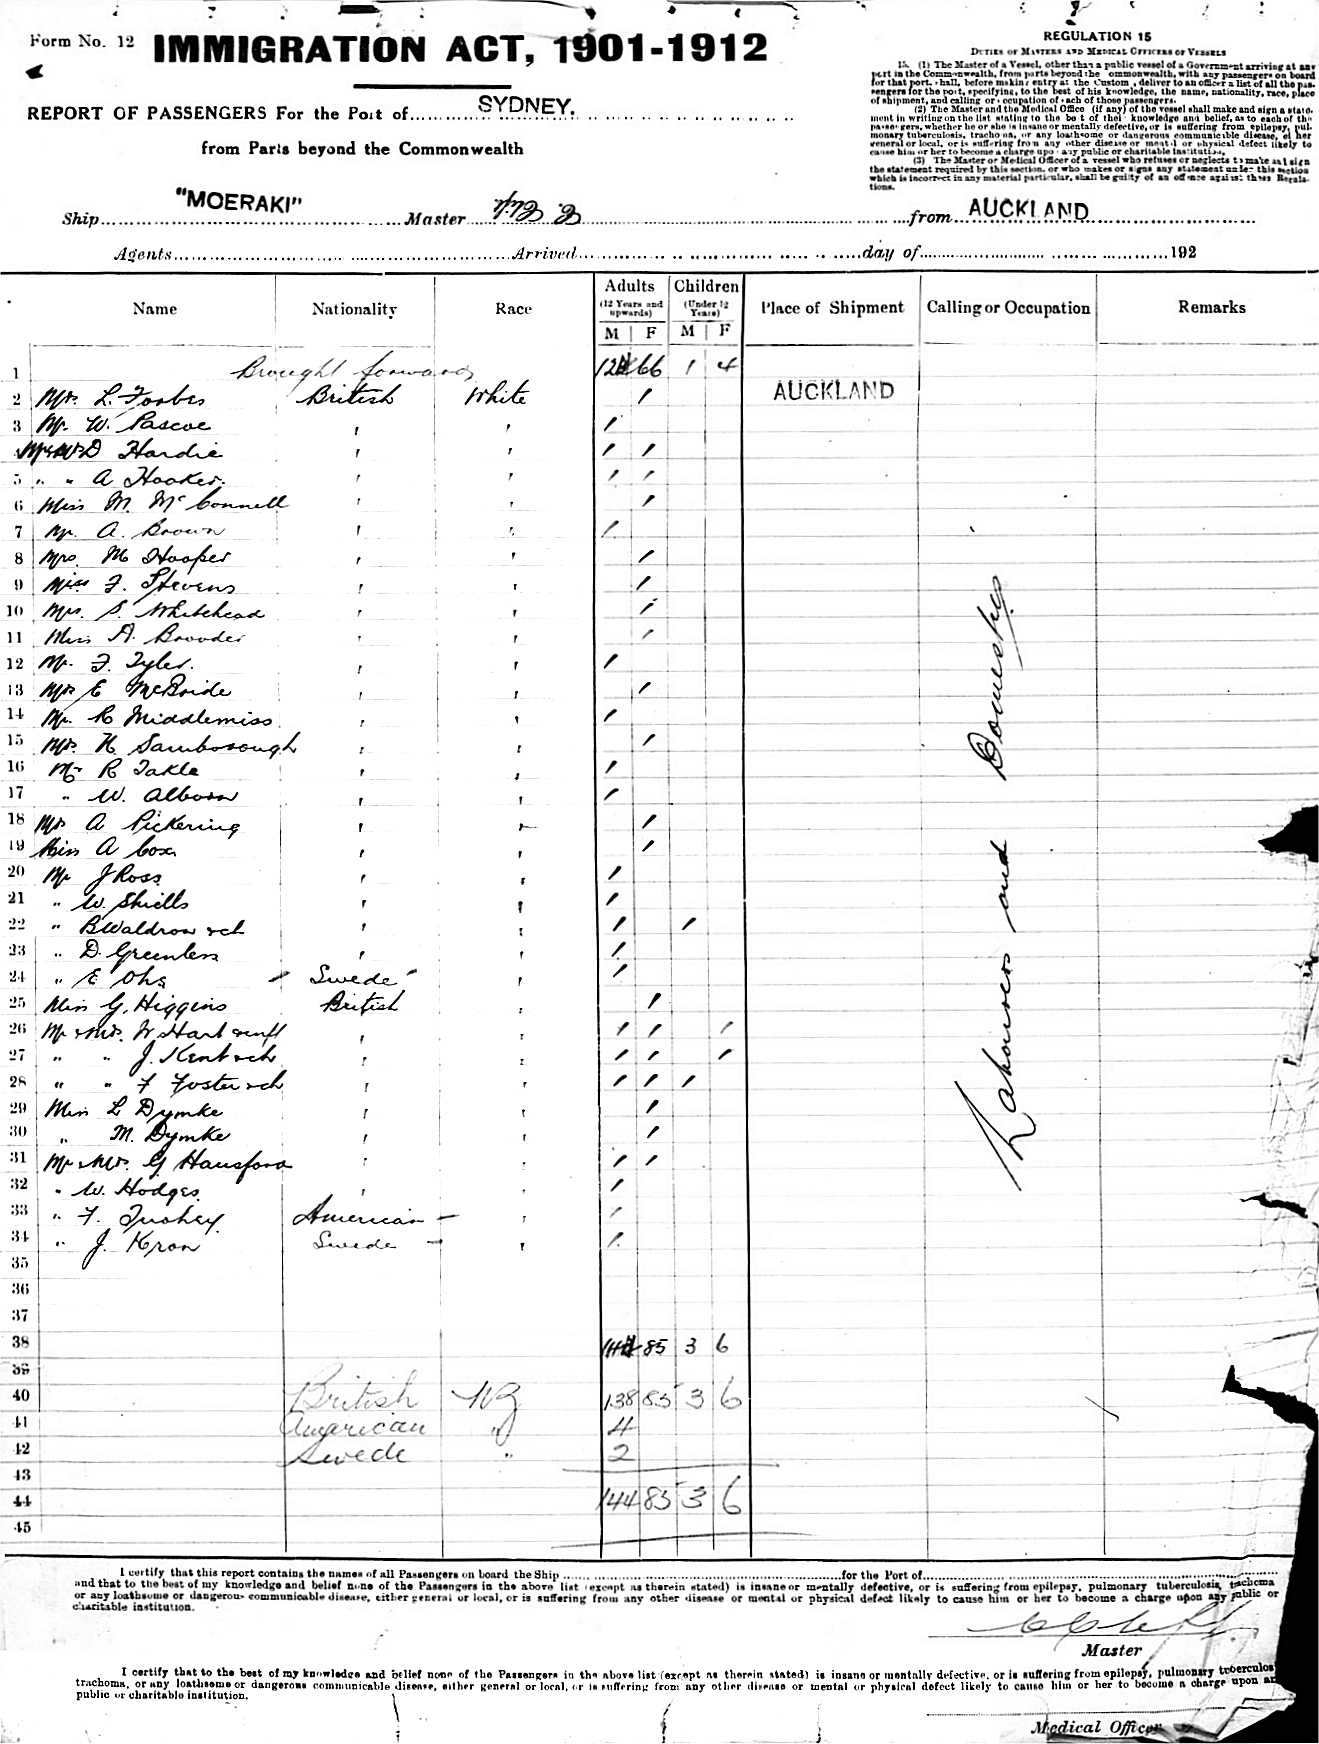 Form No. 12
IMMIGRATION ACT, 1901-1912
REPORT OF PASSENGERS For the Port of SYDNEY.
from Parts beyond the Commonwealth
REGULATION 15
DUTIES OF MASTERS AND MEDICAL OFFICERS OF VESSELS
15. (1) The Master of a Vessel, other than a public vessel of a Government arriving at any
port in the Commonwealth, from parts beyond the ommonwealth, with any passengers on board
for that port, hall, before making entry at the Custom, deliver to an officer a list of all the pas-
sengers for the port, specifying, to the best of his knowledge, the name, nationality, race, place
of shipment, and calling or occupation of each of those passengers.
(2) The Master and the Medical Office (if any) of the vessel shall make and sign a state-
ment in writing on the list stating to the best of their knowledge and belief, as to each of the
passengers, whether he or she is insane or mentally defective, or is suffering from epilepsy, pul-
monary tuberculosis, trachoma, or any loathsome or dangerous communicable disease, either
general or local, or is suffering from any other disease or mental or physical defect likely to
cause him or her to become a charge upon any public or charitable institution.
(3) The Master or Medical Officer of a vessel who refuses or neglects to make and sign
the statement required by this section, or who makes or signs any statement under this section
which is incorrect in any material particular, shall be guilty of an offence against these Regula-
tions.
Ship "MOERAKI" Master from AUCKLAND
Agents Arrived day of 192
Name Nationality Race Adults (12 Years and upwards) M F Children (Under 12 Years) M F Place of Shipment Calling or Occupation Remarks
1 Brought forward 66 1 4
2 Mrs. L. Forbes British White AUCKLAND
3 Mr. W. Pascoe "
D Hardie "
5 " " A Hooker. "
6 Miss M. McConnell "
7 Mr. A. Brown "
8 Mrs. M Hooper "
9 Miss F. Stevens "
10 Mrs. S. Whitehead "
11 Miss A. "
12 Mr. F. Tyler. "
13 Mrs E McBride "
14 Mr. R Middlemiss "
15 Mrs. H. Samborough "
16 Mr R Takle "
17 " W. Alborn "
18 Mrs A Pickering "
19 Miss A Cox "
20 Mr J Ross "
21 " W. Shiells "
22 " B Waldron & ch "
23 " D. "
24 " E Ohs Swede "
25 Miss G. Higgins British "
26 Mr & Mrs. W. Hart & inft "
27 " " J. Kent & ch "
28 " " F Foster & ch "
29 Miss L Dymke "
30 " M. Dymke "
31 Mr & Mrs. G Hansford "
32 " W. Hodges "
33 " F. American "
34 " J. Kron Swede "
35
36
37
38 85 3 6
39
40 British NZ 138 85 3 6
41 American " 4
42 Swede " 2
43
44 144 85 3 6
45
Labourers and Domestics
I certify that this report contains the names of all Passengers on board the Ship for the Port of
and that to the best of my knowledge and belief none of the Passengers in the above list (except as therein stated) is insane or mentally defective, or is suffering from epilepsy, pulmonary tuberculosis, trachoma
or any loathsome or dangerous communicable disease, either general or local, or is suffering from any other disease or mental or physical defect likely to cause him or her to become a charge upon any public or
charitable institution.
Master
I certify that to the best of my knowledge and belief none of the Passengers in the above list (except as therein stated) is insane or mentally defective, or is suffering from epilepsy, pulmonary tuberculos
trachoma, or any loathsome or dangerous communicable disease, either general or local, or is suffering from any other disease or mental or physical defect likely to cause him or her to become a charge upon an
public or charitable institution.
Medical Officer